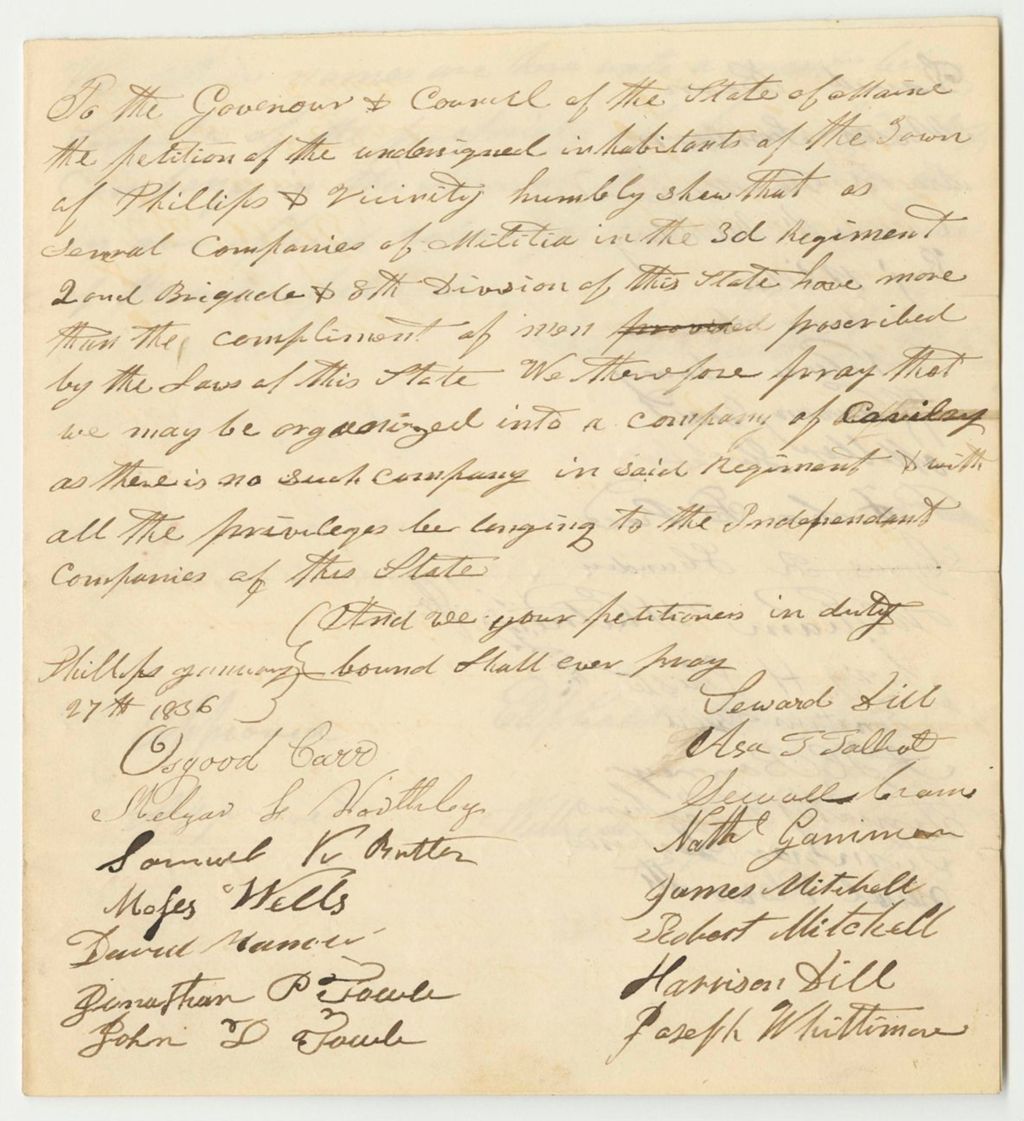 To the Govenour & Council of the State of Maine
the petition of the undersigned inhabitants of the Town
of Phillips & Vicinity humbly shew that as
several Companies of Militia in the 3d Regiment
2ond Brigade & 8th Division of this State have more
than the compliment of men provided proscribed
by the Laws of this State We therefore pray that
we may be organized into a company of Cavilry
as there is no such company in said Regiment & with
all the privileges be longing to the Independant
Companies of this State
And we your petitioners in duty
Phillips January bound Shall ever pray
27th 1836
Seward Dill
Asa T Talbot
Osgood Carr
Sewall Cram
Nathl
James Mitchell
Robert Mitchell
Harrison Dill
Joseph Whittimore
Samuel Butter
Moses Wells
David
Jonathan P Towle
John D Towle